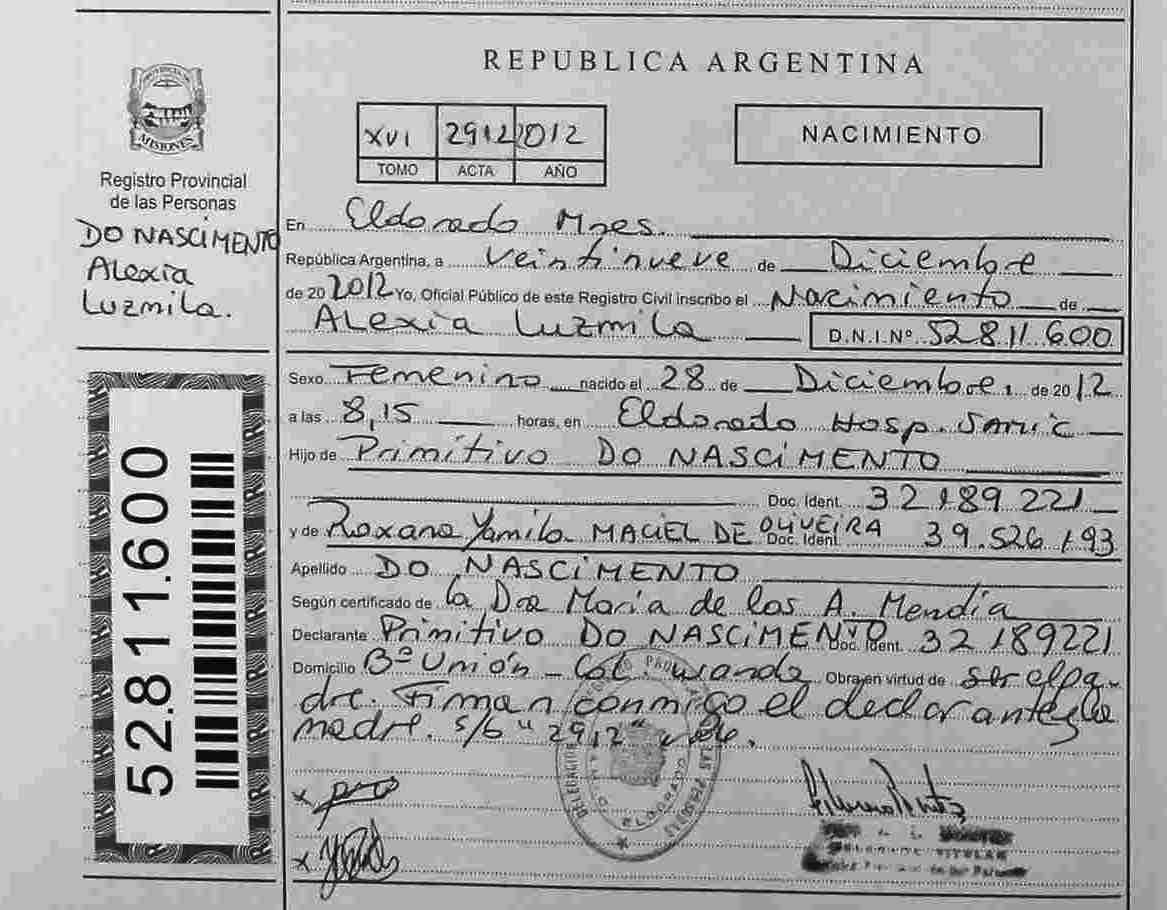 REPUBLICA ARGENTINA
PROVINCIA DE
MISIONES
Registro Provincial
de las Personas
DO NASCIMENTO
Alexia
Luzmila.
52.811.600
XVI 2912 2012
TOMO ACTA AÑO
NACIMIENTO
En Eldorado Mnes.
República Argentina, a veintinueve de Diciembre
de 20 2012 Yo, Oficial Público de este Registro Civil inscribo el Nacimiento de
Alexia Luzmila D.N.I.Nº 52811.600
Sexo Femenino nacido el 28 de Diciembre. de 2012
a las 8,15 horas, en Eldorado Hosp. Samic
Hijo de Primitivo DO NASCIMENTO
Doc. Ident. 32.189.221
y de Roxana Yamila MACIEL DE OLIVEIRA Doc. Ident. 39.526.193
Apellido DO NASCIMENTO
Según certificado de la Dra Maria de los A. Mendía
Declarante Primitivo DO NASCIMENTO Doc. Ident. 32.189221
Domicilio Bº Unión - Col. Wanda Obra en virtud de ser el pa-
dre. Firman conmigo el declarante y la
madre. s/b " 2912 " vale.
DELEGACION
ELDORADO
LAS PERSONAS
TITULAR